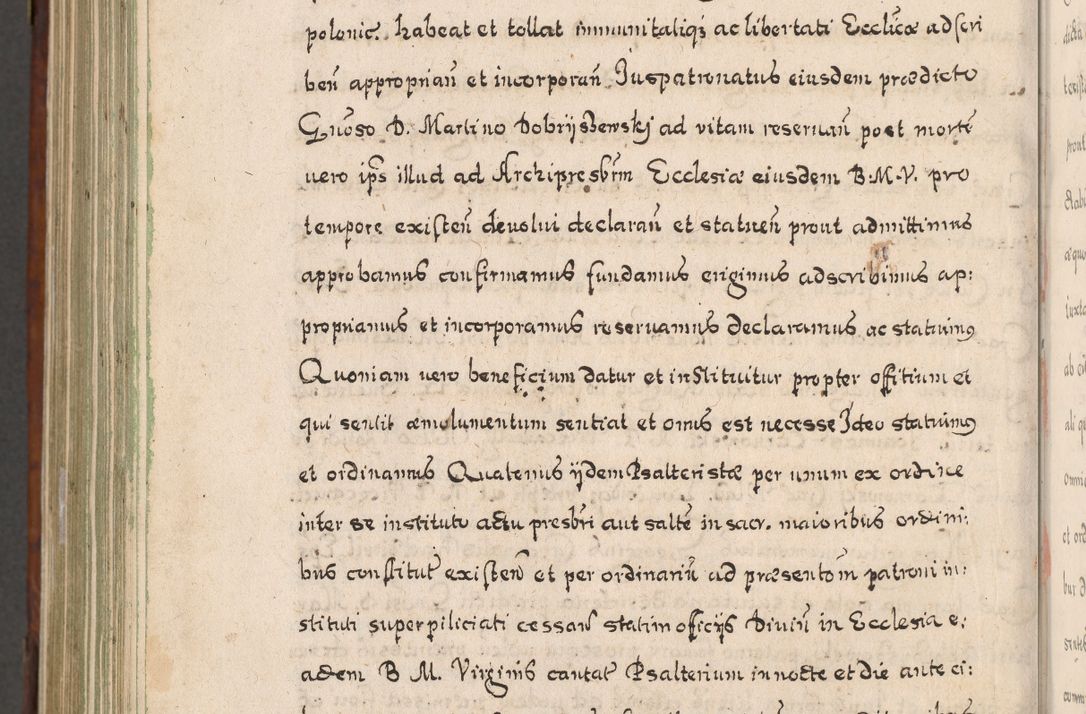 polonic. habeat et tollat immunitatiqȝ ac libertati Ecclicæ adscri
beñ appropriañ et incorporañ Juspatronatus eiusdem prædicto
Gnoso D. Martino Dobryszewskj ad vitam reseruañ post mortē
uero ips illud ad Archipresbrm Ecclesiæ eiusdem B.M.V. pro
tempore existeñ deuolui declarañ et statueñ prout admittimus
approbamus confirmamus fundamus erigimus adscribimus ap:
propriamus et incorporamus reseruamus declaramus ac statuimꝰ
Quoniam uero beneficium datur et instituitur propter offitium et
qui sentit æmolumentum sentiat et onus est necesse Jdeo statuimꝰ
et ordinamus Quatenus ijdem Psalteristæ per unum ex ordine
inter se instituto actu presbri aut saltē in sacr. maioribus ordini:
bus constitut existeñ et per ordinariũ ad præsentom patroni in:
stituti superpiliciati cessañ statim officijs Diuiñ in Ecclesia e:
adem B M. Virginis cantat Psalterium in nocte et die ante ci: